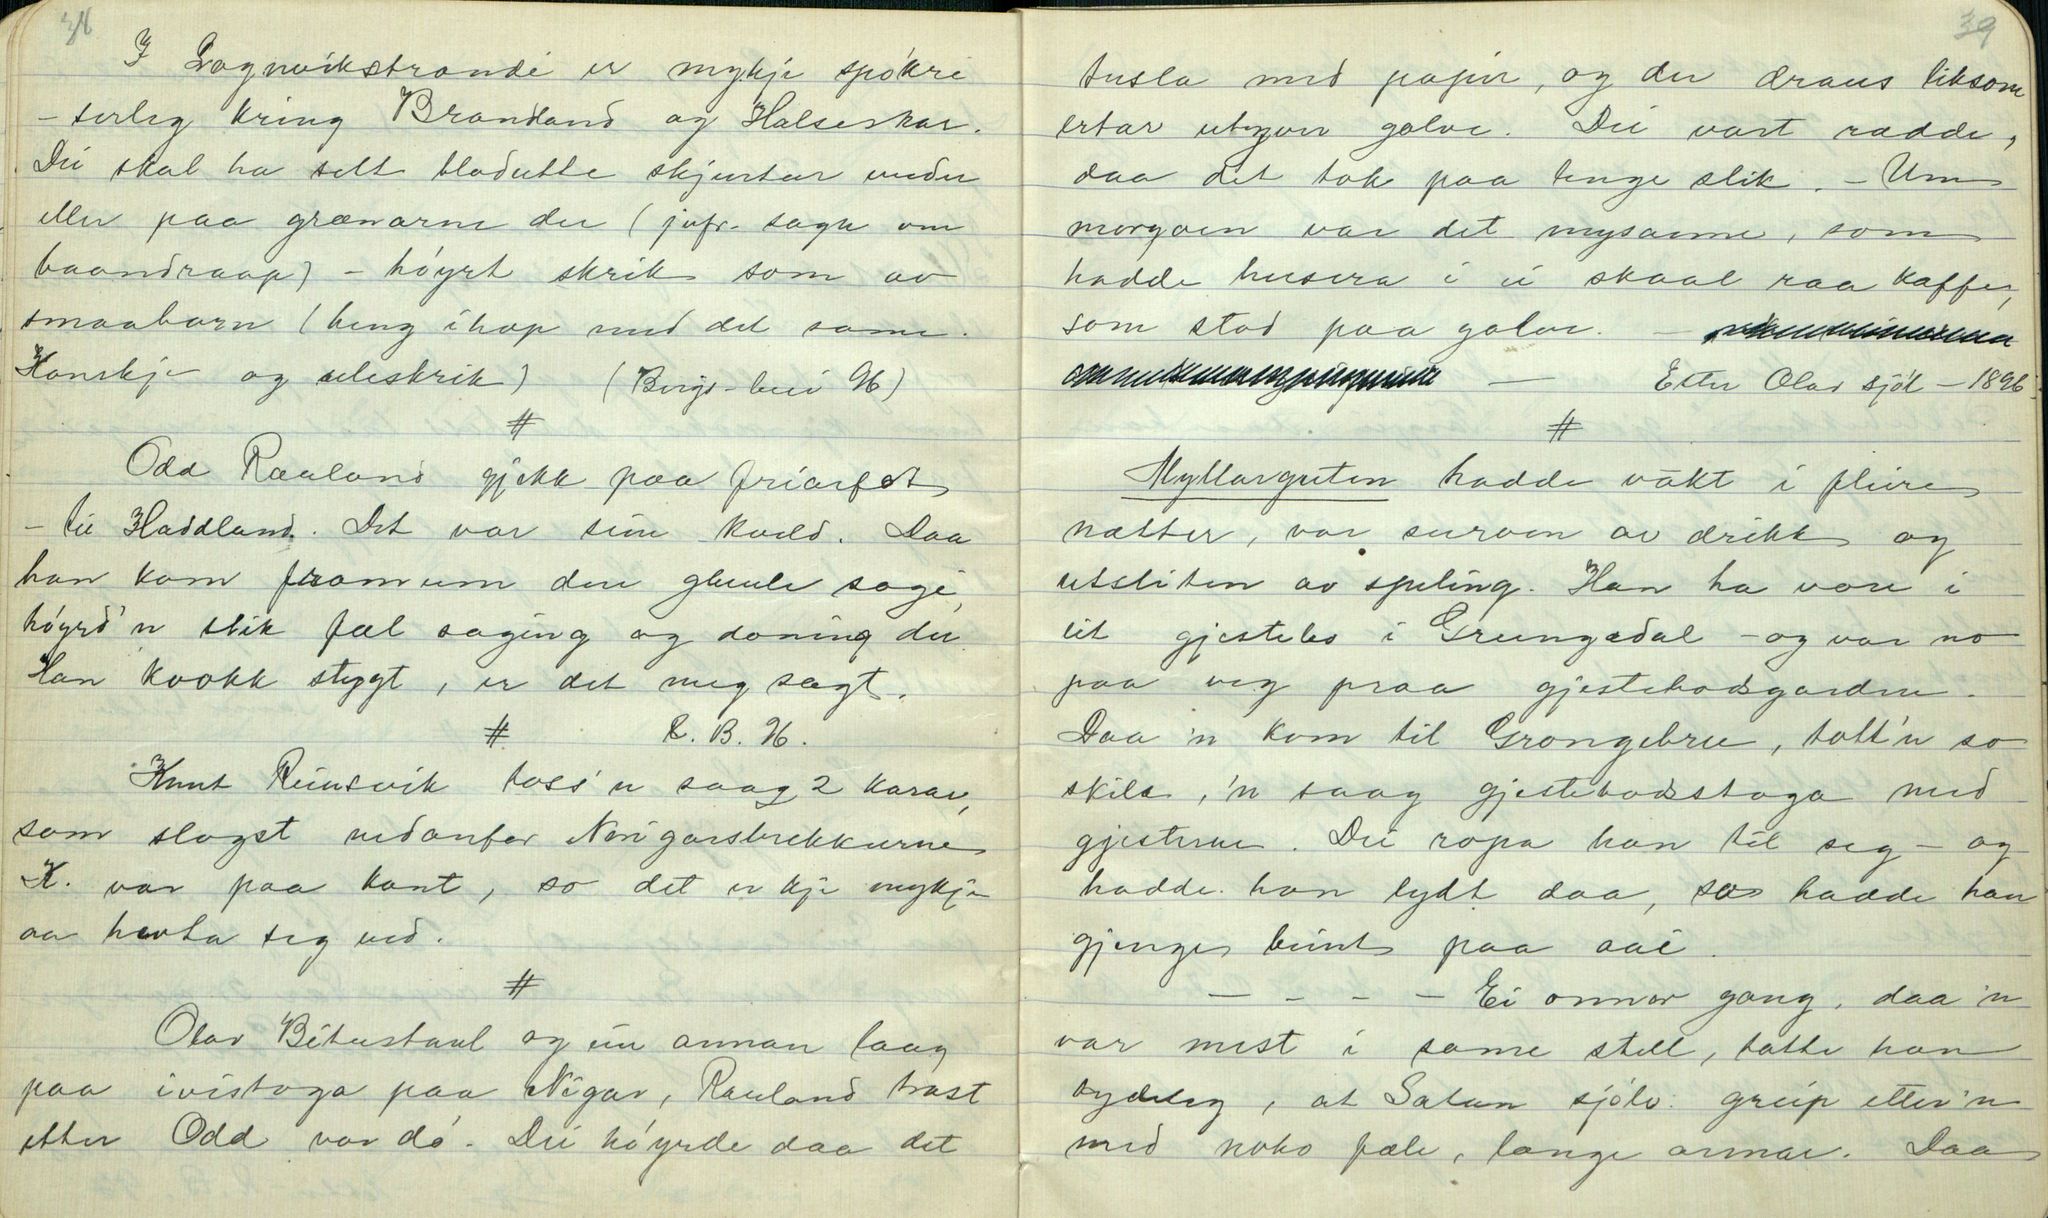 38
I Lognvikstrondi er mykje spökri
- serleg kring Brandand og Halseskar.
Dei skal ha sett blodutte skjurtur under
eller paa grænarne der (jvfr. sagn om
baandraap) - höyrt skrik som av
smaabarn (heng ihop med det same.
Kanskje og uleskrik) (Bergs-lei H)
#
Odd Rauland gjekk paa friarfot
- til Haddland. Det var sein kveld. Daa
han kom framum den gamle sagi,
höyrd'n slik fæl saging og doning der.
Han kvokk stygt, er det meg sagt.
# R. B. H.
Knut Reinsvik toss'n saag 2 karar,
som slogst nedanfor Nörigarsbrekkurne
K. var paa kant, so det er kje mykje
aa hevta seg ved.
#
Olav Bitustaul og ein annan laag
paa ivistoga paa Nigar, Rauland trast
etter Odd var dö. Dei höyrde daa det
39
tusla med papir, og der draus liksom
ertar utyver golve. Dei vart rædde,
daa det tok paa lenge slik. - Um
morgoen var det mysanne, som
hadde husera i ei skaal raa kaffe,
som stod paa golve. -
- Etter Olav sjöl - 1896.
#
Myllarguten hadde vakt i fleire
nætter, var surven av drikk og
utsliten av speling. Han ha vore i
eit gjestebo i Grungedal - og var no
paa veg praa gjestebodsgarden.
Daa 'n kom til Grungebru, tott'n so
skilc, 'n saag gjestebodsstoga med
gjesterne. Dei ropa han til seg - og
hadde han lydt daa, so hadde han
gjenge beint paa aai.
- - - - Ei onnor gong, daa 'n
var mest i same stell, totte han
tydeleg, at Satan sjölv greip etter'n
med noko fæle, lange armar. Daa